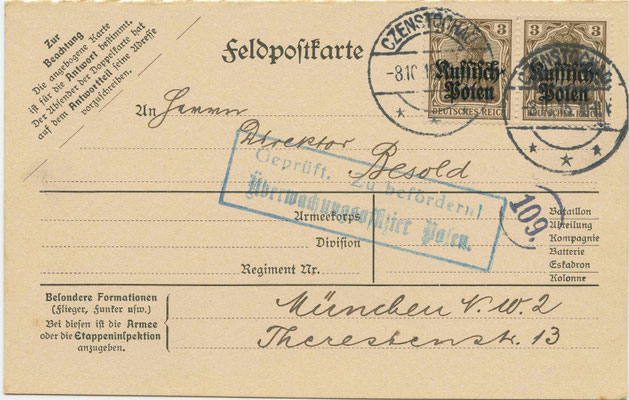 Zur
Beachtung
Die angebogene Karte
ist für die Antwort bestimmt.
Der Absender der Doppelkarte hat
auf dem Antwortteil seine Adresse
vorzuschreiben.
Feldpostkarte
CZENSTOCHAU
-8.10.
3
3
Russisch-
Polen
Russisch-
Polen
DEUTSCHES REICH
DEUTSCHES REICH
An Herrn
Direktor
Besold
Geprüft. Zu befördern!
Überwachungsoffizier Posen.
109.
Armeekorps
Division
Regiment Nr.
Bataillon
Abteilung
Kompagnie
Batterie
Eskadron
Kolonne
Besondere Formationen
(Flieger, Funker usw.)
Bei diesen ist die Armee
oder die Etappeninspektion
anzugeben.
München N.W. 2
Theresienstr. 13